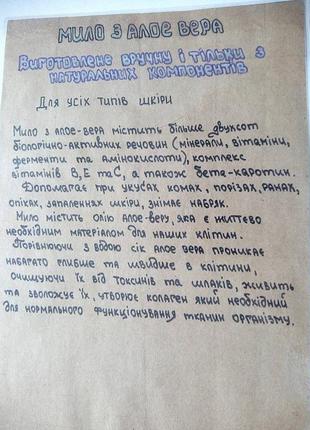 Мило з алое вера
Виготовлене вручну і тільки з
натуральних компонентів
Для усіх типів шкіри
Мило з алое-вера містить більше двухсот
біологічно-активних речовин (мінерали, вітаміни,
ферменти та амінокислоти), комплекс
вітамінів В, Е та С, а також бета-каротин.
Допомагає при укусах комах, порізах, ранах,
опіках, запаленнях шкіри, знімає набряк.
Мило містить олію алое-веру, яка є життєво
необхідним матеріалом для наших клітин.
Порівнюючи з водою сік алое вера проникає
набагато глибше та швидше в клітини,
очищуючи їх від токсинів та шлаків, живить
та зволожує їх, утворює колаген який необхідний
для нормального функціонування тканин організму.